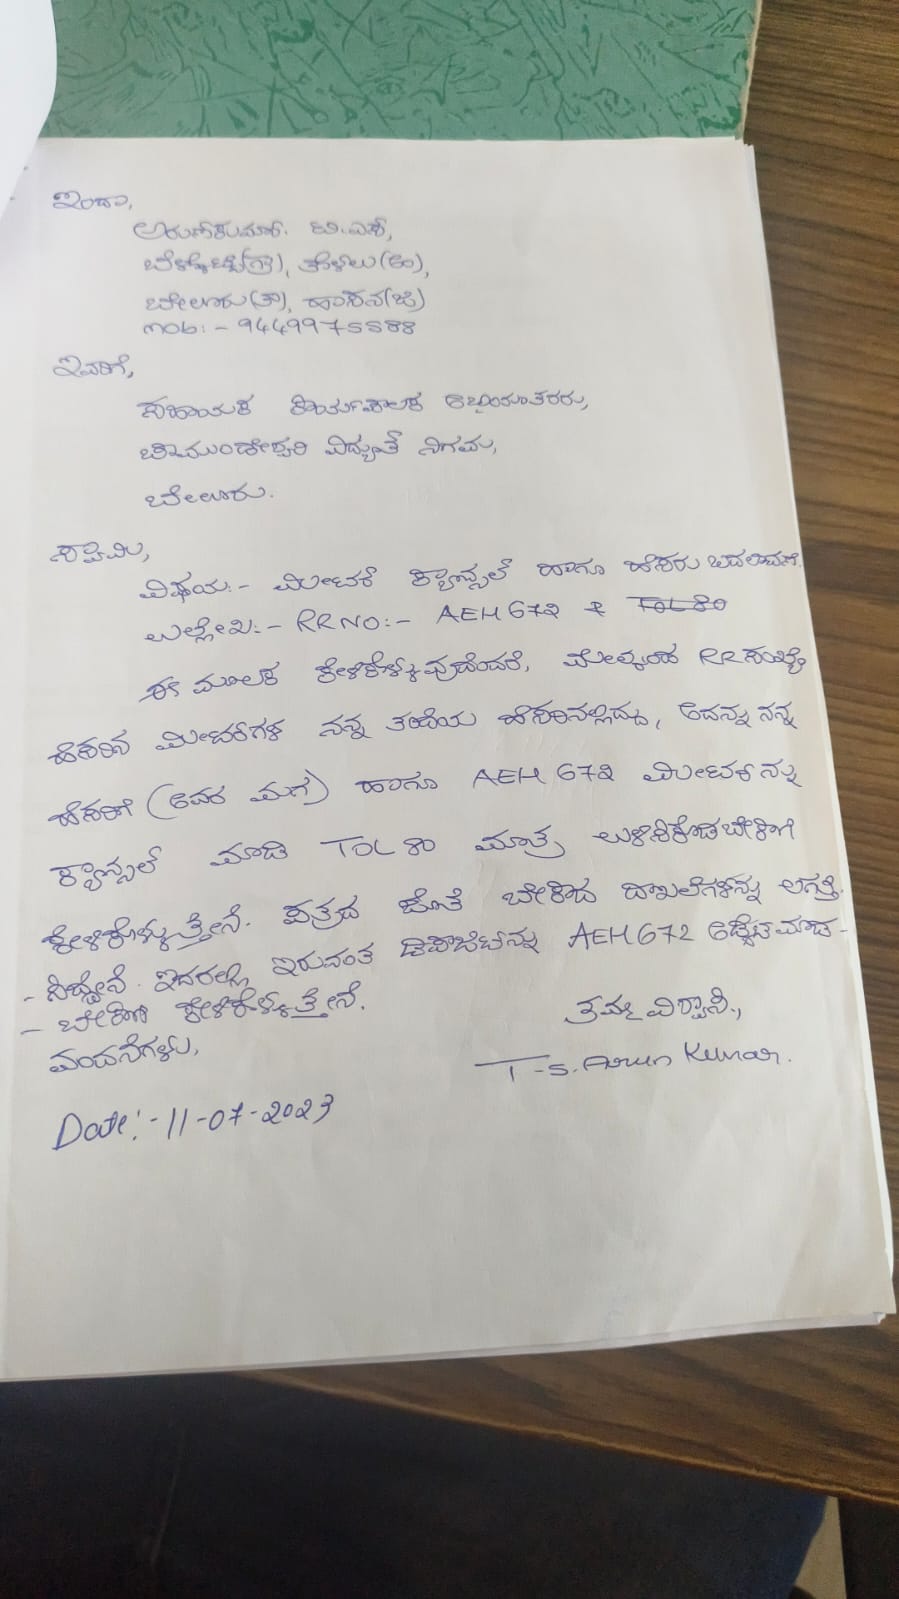 ಇಂದಾ,
ಅರುಣ್‌ಕುಮಾರ್. ಟಿ.ಎಸ್,
(ಗ್ರಾ), ತೊಳಲು(ಅಂ),
ಬೇಲೂರು(ತಾ), ಹಾಸನ(ಜಿ)
mob:- 9449975588
ಇವರಿಗೆ,
ಸಹಾಯಕ ಕಾರ್ಯಪಾಲಕ ಅಭಿಯಂತರರು,
ಚಾಮುಂಡೇಶ್ವರಿ ವಿದ್ಯುತ್ ನಿಗಮ,
ಬೇಲೂರು.
ಸ್ವಾಮಿ,
ವಿಷಯ:- ಮೀಟರ್ ಕ್ಯಾನ್ಸಲ್ ಹಾಗೂ ಹೆಸರು ಬದಲಾವಣೆ.
ಉಲ್ಲೇಖ:- RR NO:- AEH 672 & TOL 80
ಈ ಮೂಲಕ ಕೇಳಿಕೊಳ್ಳುವುದೆಂದರೆ, ಮೇಲ್ಕಂಡ RR ಸಂಖ್ಯೆ
ಹೆಸರಿನ ಮೀಟರ್‌ಗಳ ನನ್ನ ತಂದೆಯ ಹೆಸರಿನಲ್ಲಿದ್ದು, ಅದನ್ನು ನನ್ನ
ಹೆಸರಿಗೆ (ಅವರ ಮಗ) ಹಾಗೂ AEH 672 ಮೀಟರ್‌ನ್ನು
ಕ್ಯಾನ್ಸಲ್ ಮಾಡಿ TOL 80 ಮಾತ್ರ ಉಳಿಸಿಕೊಡಬೇಕಾಗಿ
ಕೇಳಿಕೊಳ್ಳುತ್ತೇನೆ. ಪತ್ರದ ಜೊತೆ ಬೇಕಾದ ದಾಖಲೆಗಳನ್ನು ಲಗತ್ತಿ-
-ಸಿದ್ದೇನೆ. ಇದರಲ್ಲಿ ಇರುವಂತ ಡಿಪಾಜಿಟನ್ನು AEH 672 ಮಾಡ-
-ಬೇಕಾಗಿ ಕೇಳಿಕೊಳ್ಳುತ್ತೇನೆ.
ವಂದನೆಗಳು,
ತಮ್ಮ ವಿಶ್ವಾಸಿ,
T-S. Arun Kumar.
Date:- 11-07-2023